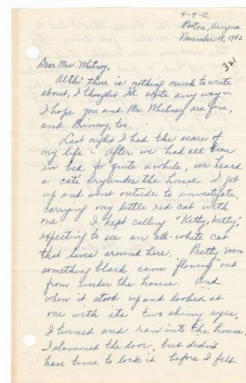 4-9-C
Poston, Arizona
November 18, 1942
Dear Mrs. Whitney,
Altho' there is nothing much to write
about, I thought I'd write anyway.
I hope you and Mr. Whitney are fine,
and too.
Last night I had the scare of
my life. After we had all been
in bed for quite a while, we heard
a cat's cry under the house. I got
up and went outside to investigate,
carrying my little red cat with
me. I kept calling "Kitty, Kitty,"
expecting to see an all-white cat
that lives around here. Pretty soon
something black came flowing out
from under the house. And
when it stood up and looked at
me with its two shiny eyes,
I turned and ran into the house.
I slammed the door, but didn't
have time to lock it before I felt